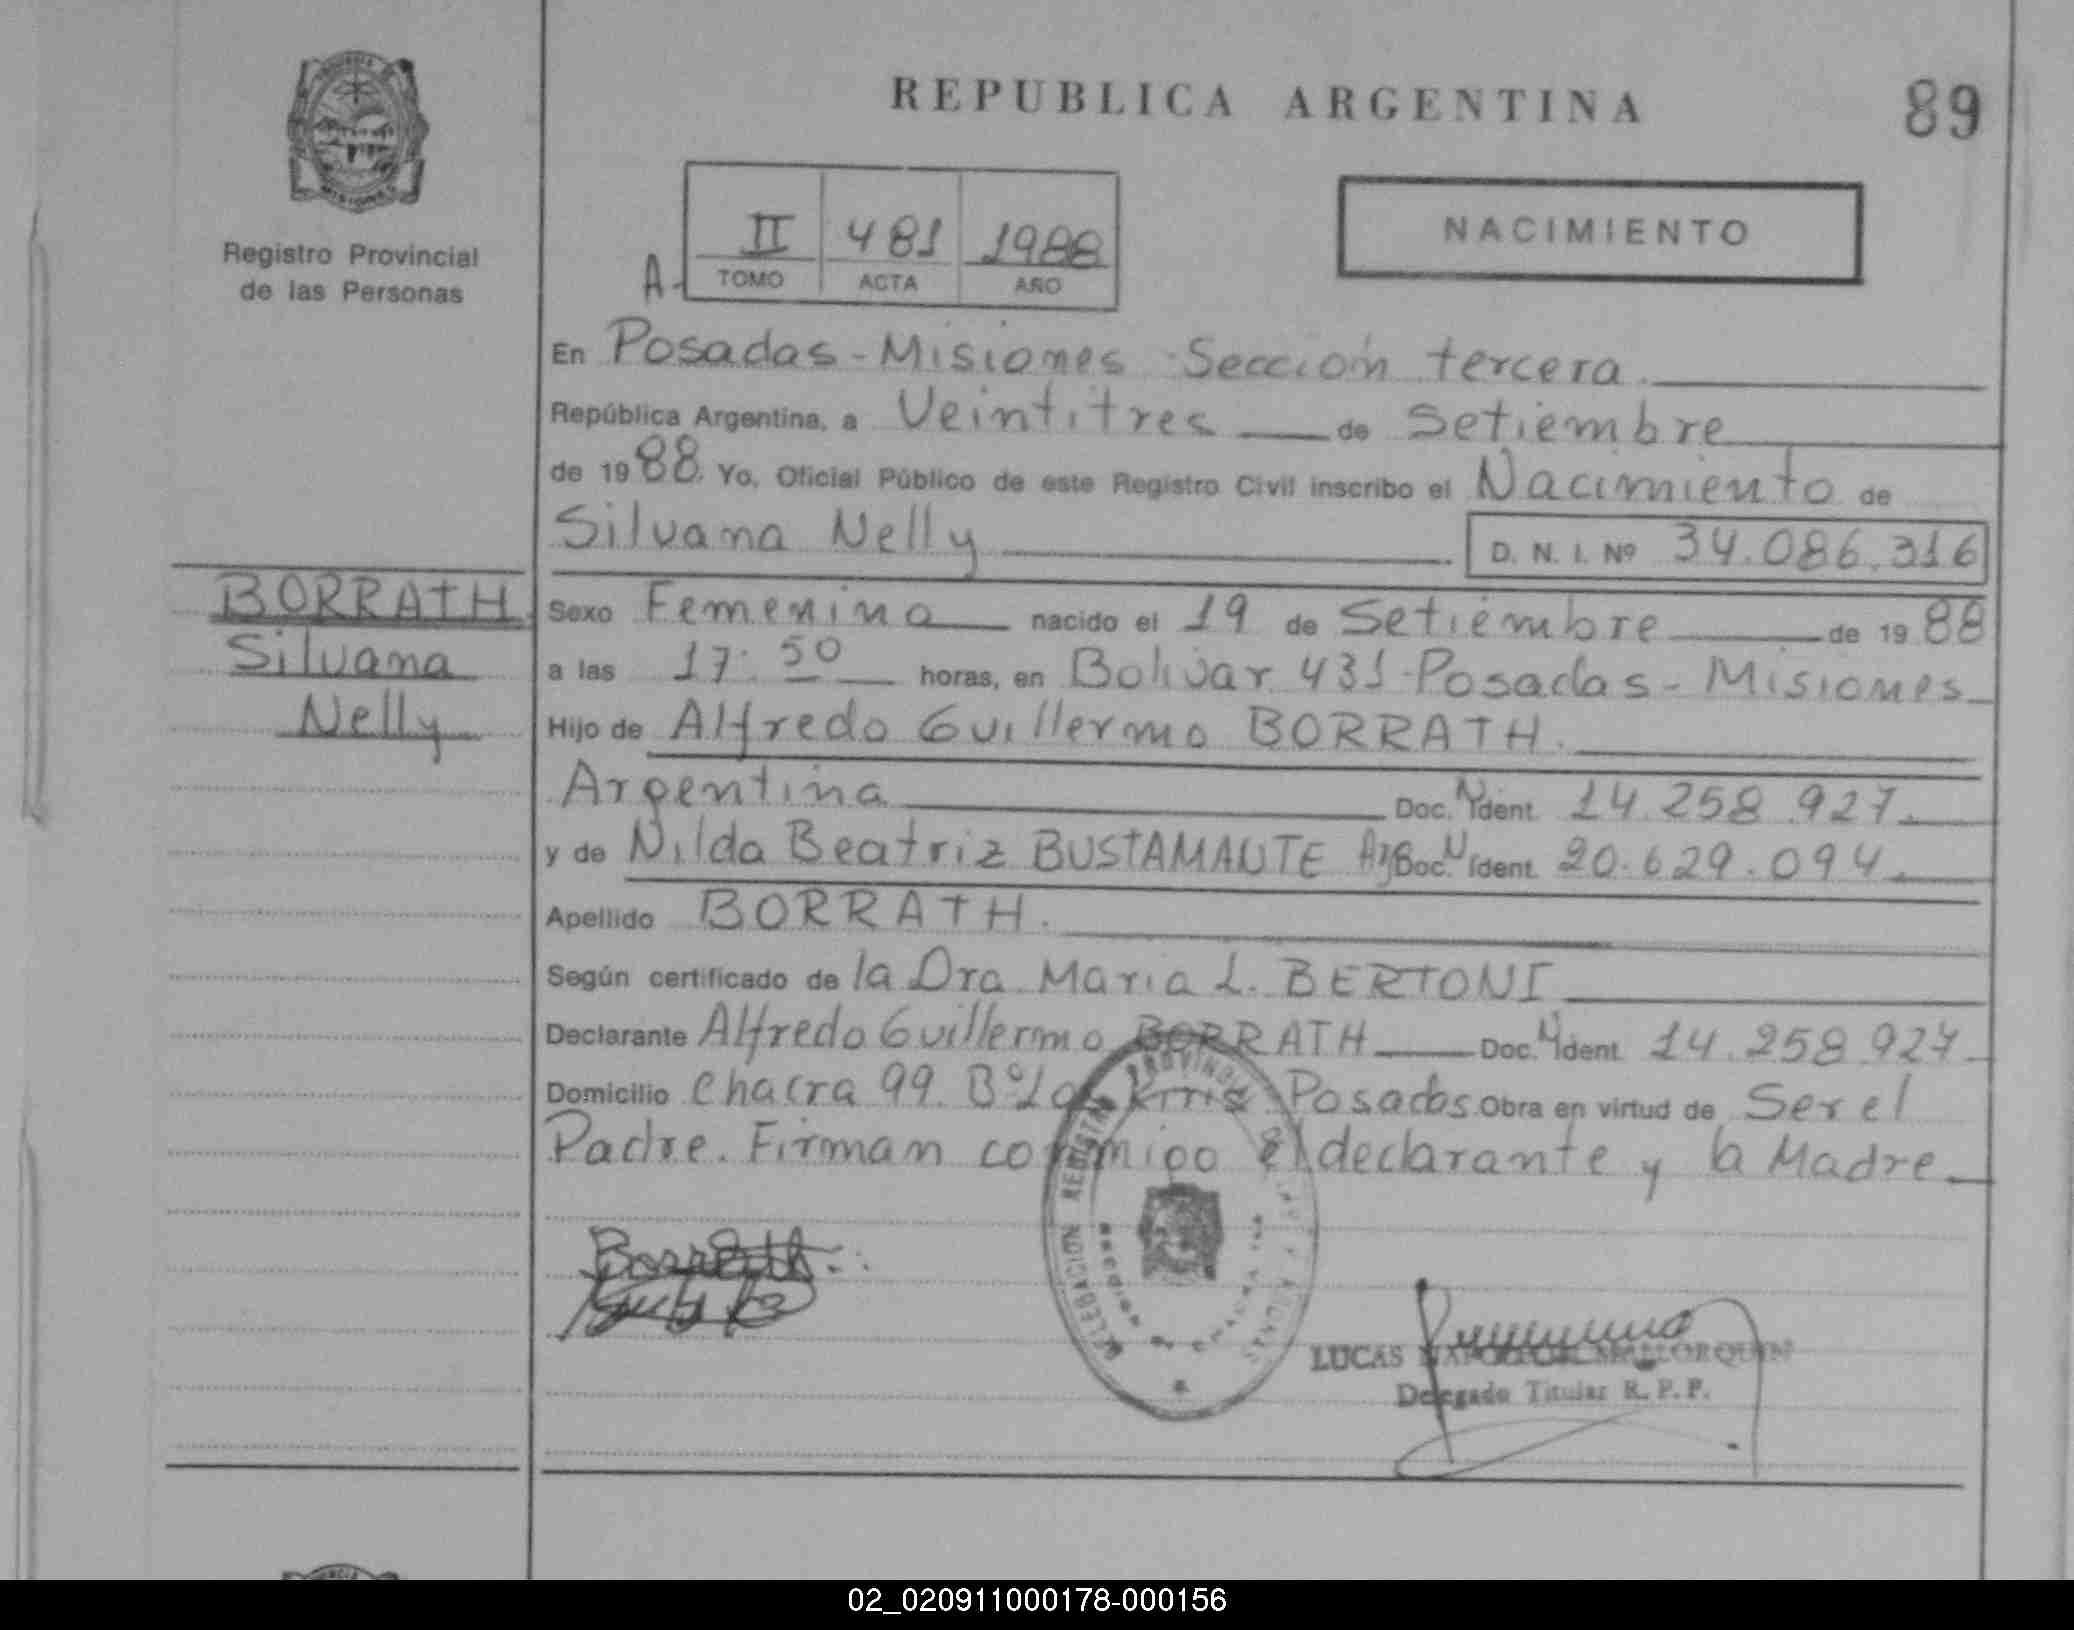 REPUBLICA ARGENTINA
89
Registro Provincial
de las Personas
A-
II 481 1988
TOMO ACTA AÑO
NACIMIENTO
En Posadas - Misiones Sección tercera.
República Argentina, a Veintitres de Setiembre
de 1988. Yo, Oficial Público de este Registro Civil inscribo el Nacimiento de
Silvana Nelly D. N. I. Nº 34.086.316
BORRATH
Silvana
Nelly
Sexo Femenino nacido el 19 de Setiembre de 1988
a las 17:50 horas, en Bolivar 431 - Posadas - Misiones
Hijo de Alfredo Guillermo BORRATH.
Argentina Doc. N Ident. 14.258.927.
y de Nilda Beatriz BUSTAMANTE Arg Doc. N Ident. 20.629.094.
Apellido BORRATH.
Según certificado de la Dra Maria L. BERTONI
Declarante Alfredo Guillermo BORRATH Doc. N Ident. 14.258.927
Domicilio Chacra 99. Bº Posadas. Obra en virtud de Ser el
Padre. Firman conmigo el declarante y la Madre
Borrath
LUCAS NAPOLEON MALLORQUIN
Delegado Titular R. P. P.
02_020911000178-000156